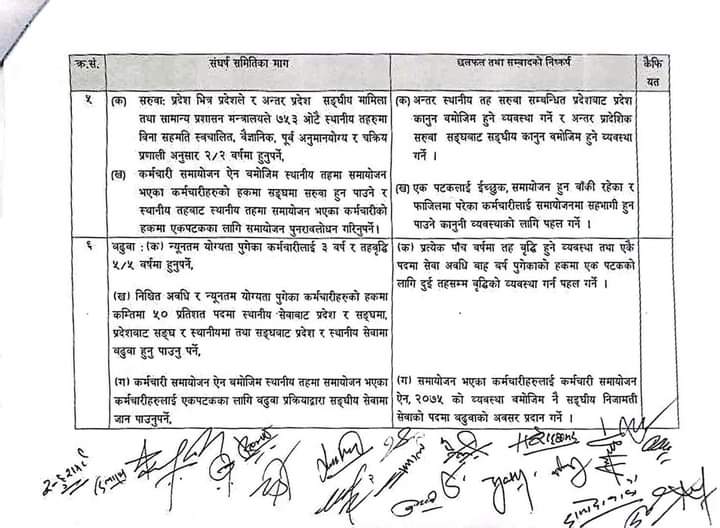 क्र.सं. संघर्ष समितिका माग छलफल तथा सम्वादको निष्कर्ष कैफियत
५ (क) सरुवा: प्रदेश भित्र प्रदेशले र अन्तर प्रदेश सङ्घीय मामिला
तथा सामान्य प्रशासन मन्त्रालयले ७५३ ओटै स्थानीय तहरुमा
विना सहमति स्वचालित, वैज्ञानिक, पूर्व अनुमानयोग्य र चक्रिय
प्रणाली अनुसार २/२ वर्षमा हुनुपर्ने,
(ख) कर्मचारी समायोजन ऐन बमोजिम स्थानीय तहमा समायोजन
भएका कर्मचारीहरुको हकमा सङ्घमा सरुवा हुन पाउने र
स्थानीय तहबाट स्थानीय तहमा समायोजन भएका कर्मचारीको
हकमा एकपटकका लागि समायोजन पुनरावलोधन गरिनुपर्ने।
(क) अन्तर स्थानीय तह सरुवा सम्बन्धित प्रदेशबाट प्रदेश
कानुन बमोजिम हुने व्यवस्था गर्ने र अन्तर प्रादेशिक
सरुवा सङ्घबाट सङ्घीय कानुन बमोजिम हुने व्यवस्था
गर्ने ।
(ख) एक पटकलाई ईच्छुक, समायोजन हुन बाँकी रहेका र
फाजिलमा परेका कर्मचारीलाई समायोजनमा सहभागी हुन
पाउने कानुनी व्यवस्थाको लागि पहल गर्ने ।
६ बढुवा : (क) न्यूनतम योग्यता पुगेका कर्मचारीलाई ३ वर्ष र तहवृद्धि
५/५ वर्षमा हुनुपर्ने,
(ख) निश्चित अवधि र न्यूनतम योग्यता पुगेका कर्मचारीहरुको हकमा
कम्तिमा ५० प्रतिशत पदमा स्थानीय सेवाबाट प्रदेश र सङ्घमा,
प्रदेशबाट सङ्घ र स्थानीयमा तथा सङ्घबाट प्रदेश र स्थानीय सेवामा
बढुवा हुनु पाउनु पर्ने,
(ग) कर्मचारी समायोजन ऐन बमोजिम स्थानीय तहमा समायोजन भएका
कर्मचारीहरुलाई एकपटकका लागि बढुवा प्रक्रियाद्वारा सङ्घीय सेवामा
जान पाउनुपर्ने,
(क) प्रत्येक पाँच वर्षमा तह बृद्धि हुने व्यवस्था तथा एकै
पदमा सेवा अवधि बाह्र वर्ष पुगेकाको हकमा एक पटकको
लागि दुई तहसम्म बृद्धिको व्यवस्था गर्न पहल गर्ने ।
(ग) समायोजन भएका कर्मचारीहरुलाई कर्मचारी समायोजन
ऐन, २०७५ को व्यवस्था बमोजिम नै सङ्घीय निजामती
सेवाको पदमा बढुवाको अवसर प्रदान गर्ने ।